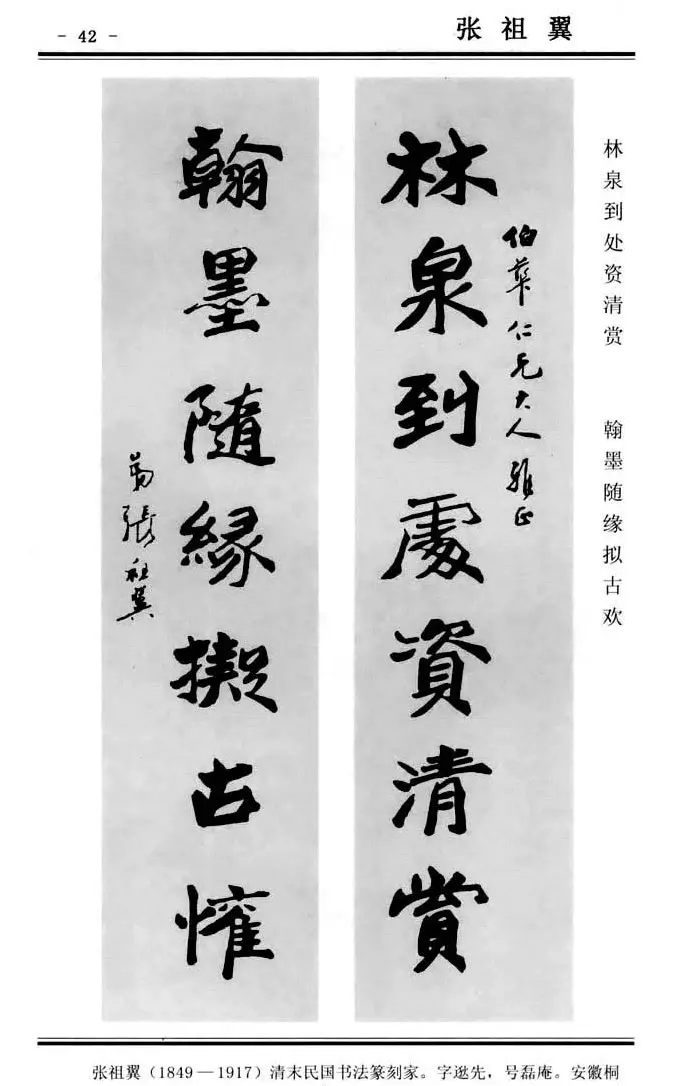 - 42 -
张祖翼
林泉到处资清赏　翰墨随缘拟古欢
伯華仁兄大人雅正
林泉到處資清賞
翰墨隨緣擬古懽
弟張祖翼
张祖翼（1849—1917）清末民国书法篆刻家。字逖先，号磊庵。安徽桐